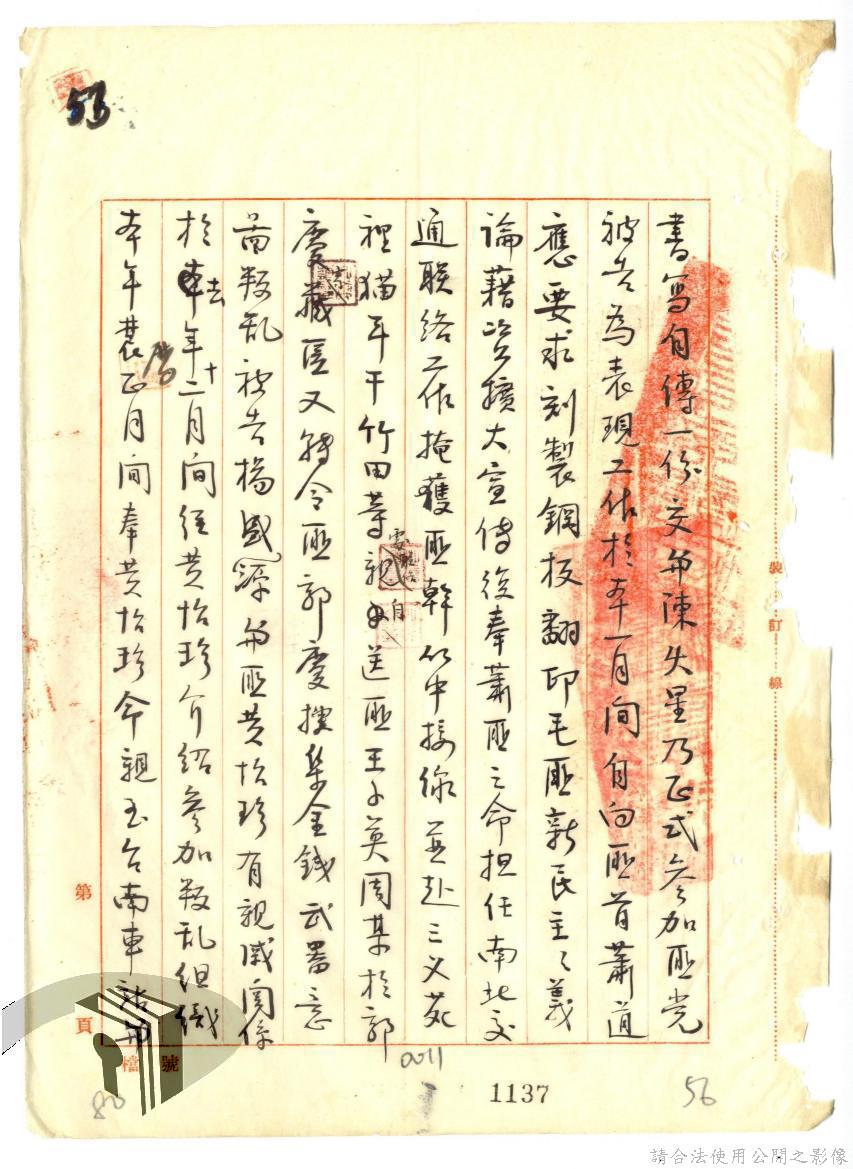 53
書寫自傳一份交與陳火星乃正式參加匪党
被告為表現工作於本年一月間自向匪首蕭道
應要求刻製鋼板翻印毛匪新民主主義
論藉資擴大宣傳後奉蕭匪之命担任南北交
通联絡工作掩護匪幹以中接線並赴三义苑
裡猫耳干竹田等親自送匪王子英周某於郭
慶藏匿又轉令匪郭慶搜集金錢武器意
圖叛乱被告楊盛源與匪黃怡珍有親戚関係
於去年十二月間經黃怡珍介紹參加叛乱组織
本年農曆正月間奉黃怡珍命親至台南車站與
裝 訂 線
第 頁
檔號
0011
1137
56
80
請合法使用公開之影像